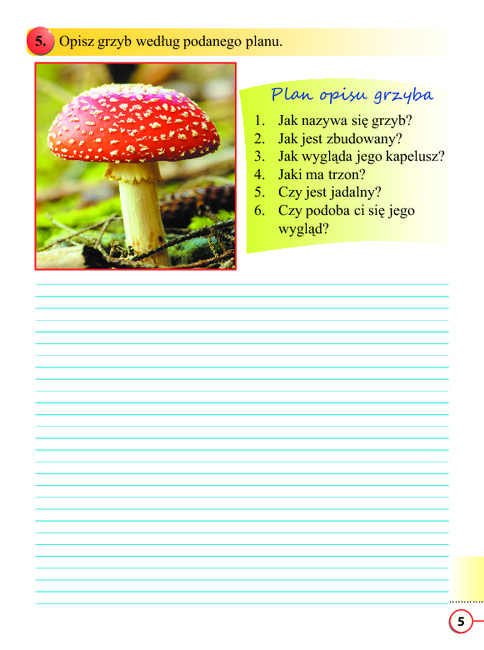 5. Opisz grzyb według podanego planu.
Plan opisu grzyba
1. Jak nazywa się grzyb?
2. Jak jest zbudowany?
3. Jak wygląda jego kapelusz?
4. Jaki ma trzon?
5. Czy jest jadalny?
6. Czy podoba ci się jego
wygląd?
5